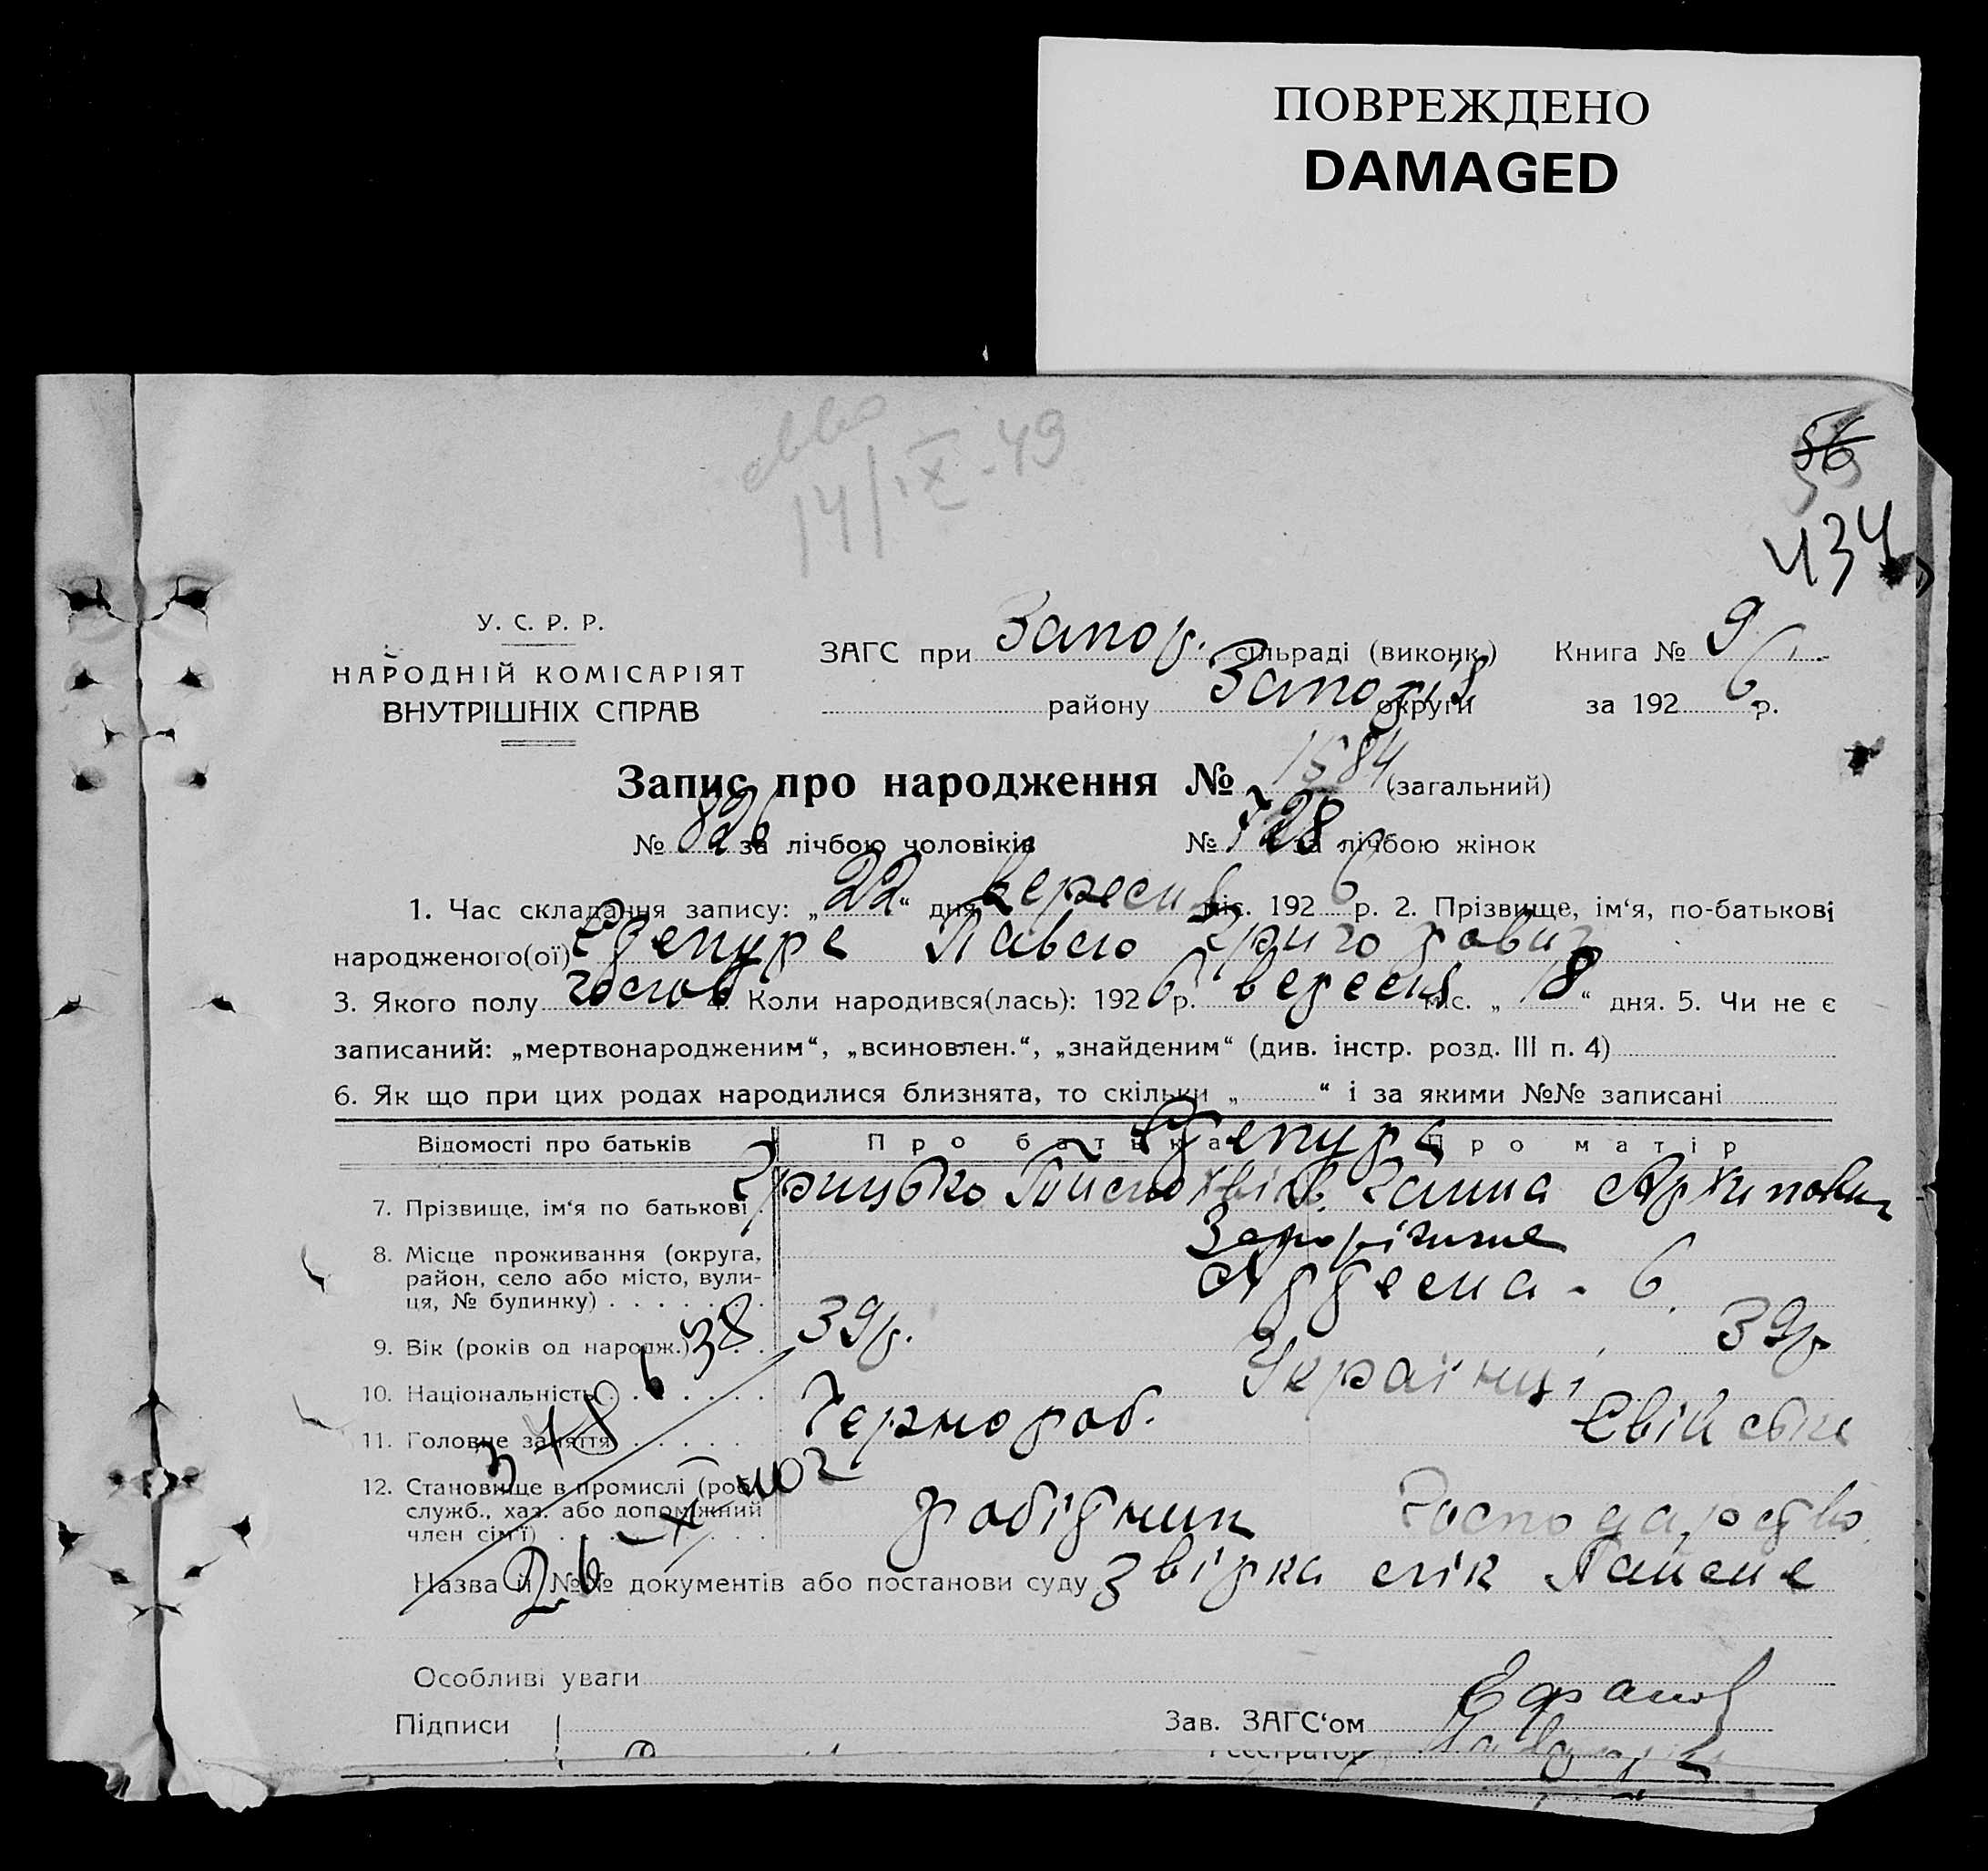 ПОВРЕЖДЕНО
DAMAGED
14/IX-49
56
434
У. С. Р. Р.
НАРОДНІЙ КОМІСАРІЯТ
ВНУТРІШНІХ СПРАВ
ЗАГС при Запор. сільраді (виконк.) Книга № 9
району Запоріз округи за 1926 р.
Запис про народження № 1584 (загальний)
№ 826 за лічбою чоловіків № 728 за лічбою жінок
1. Час складання запису: „22“ дня Вересня міс. 1926 р. 2. Прізвище, ім‘я, по-батькові
народженого(ої) Павло Григорович
3. Якого полу 4. Коли народився(лась): 1926 р. вересня міс. „18“ дня. 5. Чи не є
записаний: „мертвонародженим“, „всиновлен.“, „знайденим“ (див. інстр. розд. III п. 4)
6. Як що при цих родах народилися близнята, то скільки „ “ і за якими №№ записані
Відомості про батьків Про батька Про матір
7. Прізвище, ім‘я по батькові Грицько Ганна Архиповна
8. Місце проживання (округа, район, село або місто, вулиця, № будинку) Запоріжжя
9. Вік (років од народж.) 39р. 39р.
10. Національність Українці
11. Головне заняття Чернороб. Свійське
12. Становище в промислі (роб., служб., хаз. або допоміжний член сім‘ї) робітник господарство
Назва й №№ документів або постанови суду
Особливі уваги
Підписи Зав. ЗАГС‘ом
Реєстратор